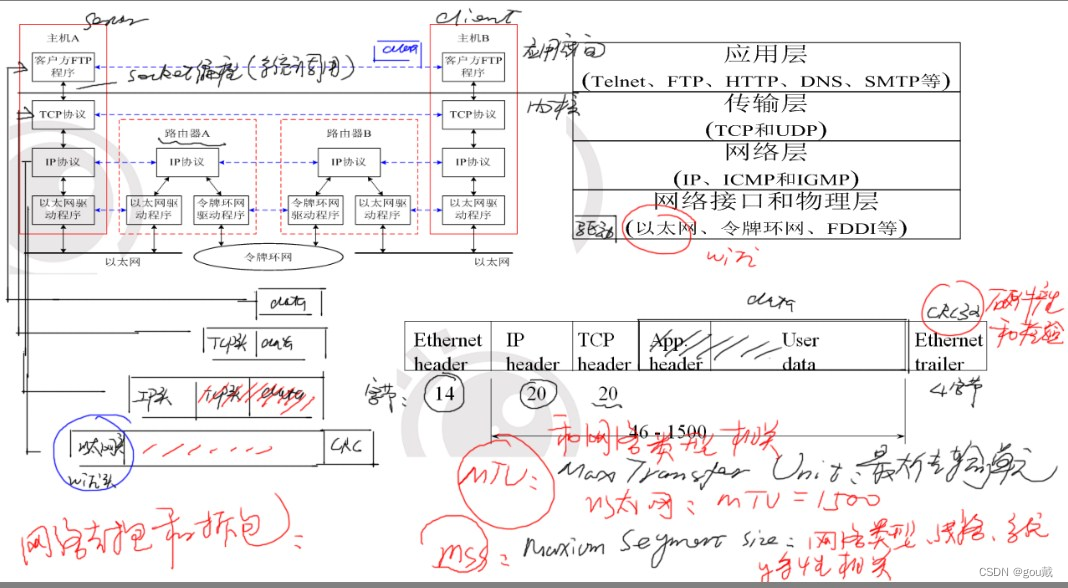 Server
client
主机A
客户方FTP
程序
TCP协议
IP协议
以太网驱
动程序
socket编程(系统调用)
data
主机B
客户方FTP
程序
TCP协议
IP协议
以太网驱
动程序
路由器A
IP协议
以太网驱
动程序
令牌环网
驱动程序
路由器B
IP协议
令牌环网
驱动程序
以太网驱
动程序
以太网
令牌环网
以太网
内核
应用层
(Telnet、FTP、HTTP、DNS、SMTP等)
传输层
(TCP和UDP)
网络层
(IP、ICMP和IGMP)
网络接口和物理层
驱动
(以太网、令牌环网、FDDI等)
wifi
data
TCP头 data
IP头 TCP头 data
以太网头 CRC
wifi头
网络封包和拆包:
data
CRC32
硬件产生
和校验
Ethernet
header
IP
header
TCP
header
App.
header
User
data
Ethernet
trailer
字节: 14 20 20 4字节
46 - 1500
和网络类型相关
MTU: Max Transfer Unit: 最大传输单元
以太网: MTU = 1500
MSS: Maxium Segment size: 网络类型、线路、系统
特性相关
CSDN @gou藏